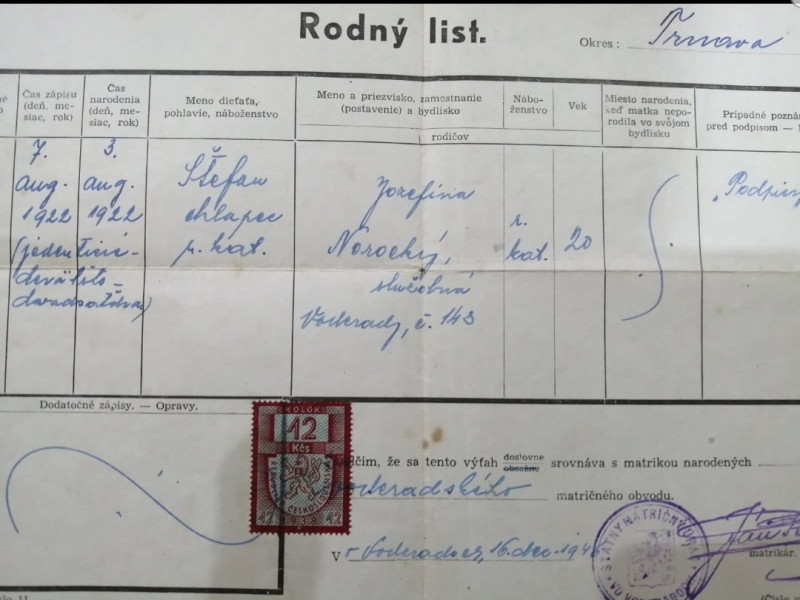 Rodný list.
Okres: Trnava
Čas zápisu
(deň, me-
siac, rok)
Čas
narodenia
(deň, me-
siac, rok)
Meno dieťaťa,
pohlavie, náboženstvo
Meno a priezvisko, zamestnanie
(postavenie) a bydlisko
rodičov
Nábo-
ženstvo
Vek
Miesto narodenia,
keď matka nepo-
rodila vo svojom
bydlisku
Prípadné pozná
pred podpisom —
7.
aug.
1922
3.
aug.
1922
(jedentisíc-
deväťsto-
dvadsaťdva)
Štefan
chlapec
r. kat.
Jozefína
slúžobná
Voderady, č. 143
r.
kat.
20
„Podpisy
Dodatočné zápisy. — Opravy.
KOLOK
12
Kčs
12 1938 12
čím, že sa tento výťah doslovne srovnáva s matrikou narodených
obsažne
voderadského matričného obvodu.
V Voderadoch, 16. dec. 194
ŠTÁTNY MATRIČNÝ ÚRAD
matrikár.